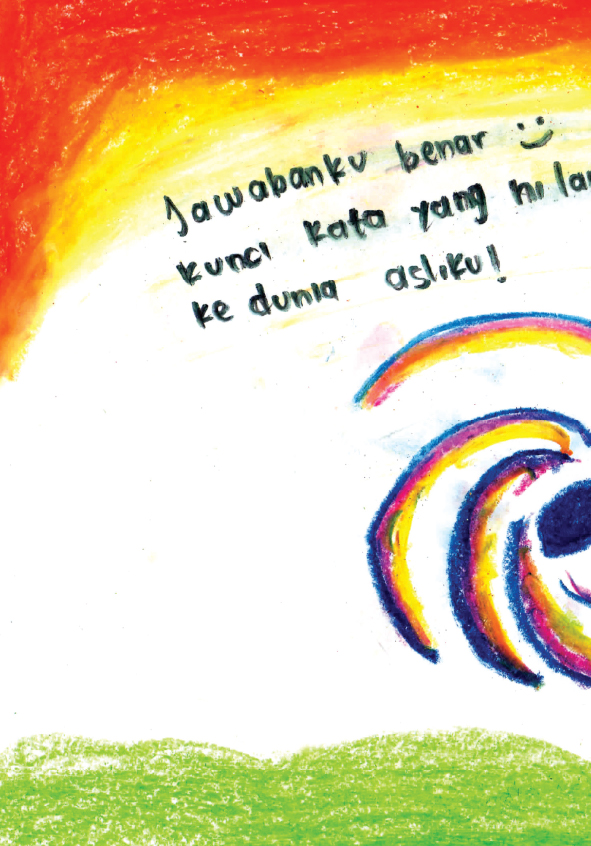 Jawabanku benar
kunci kata yang
ke dunia asliku!